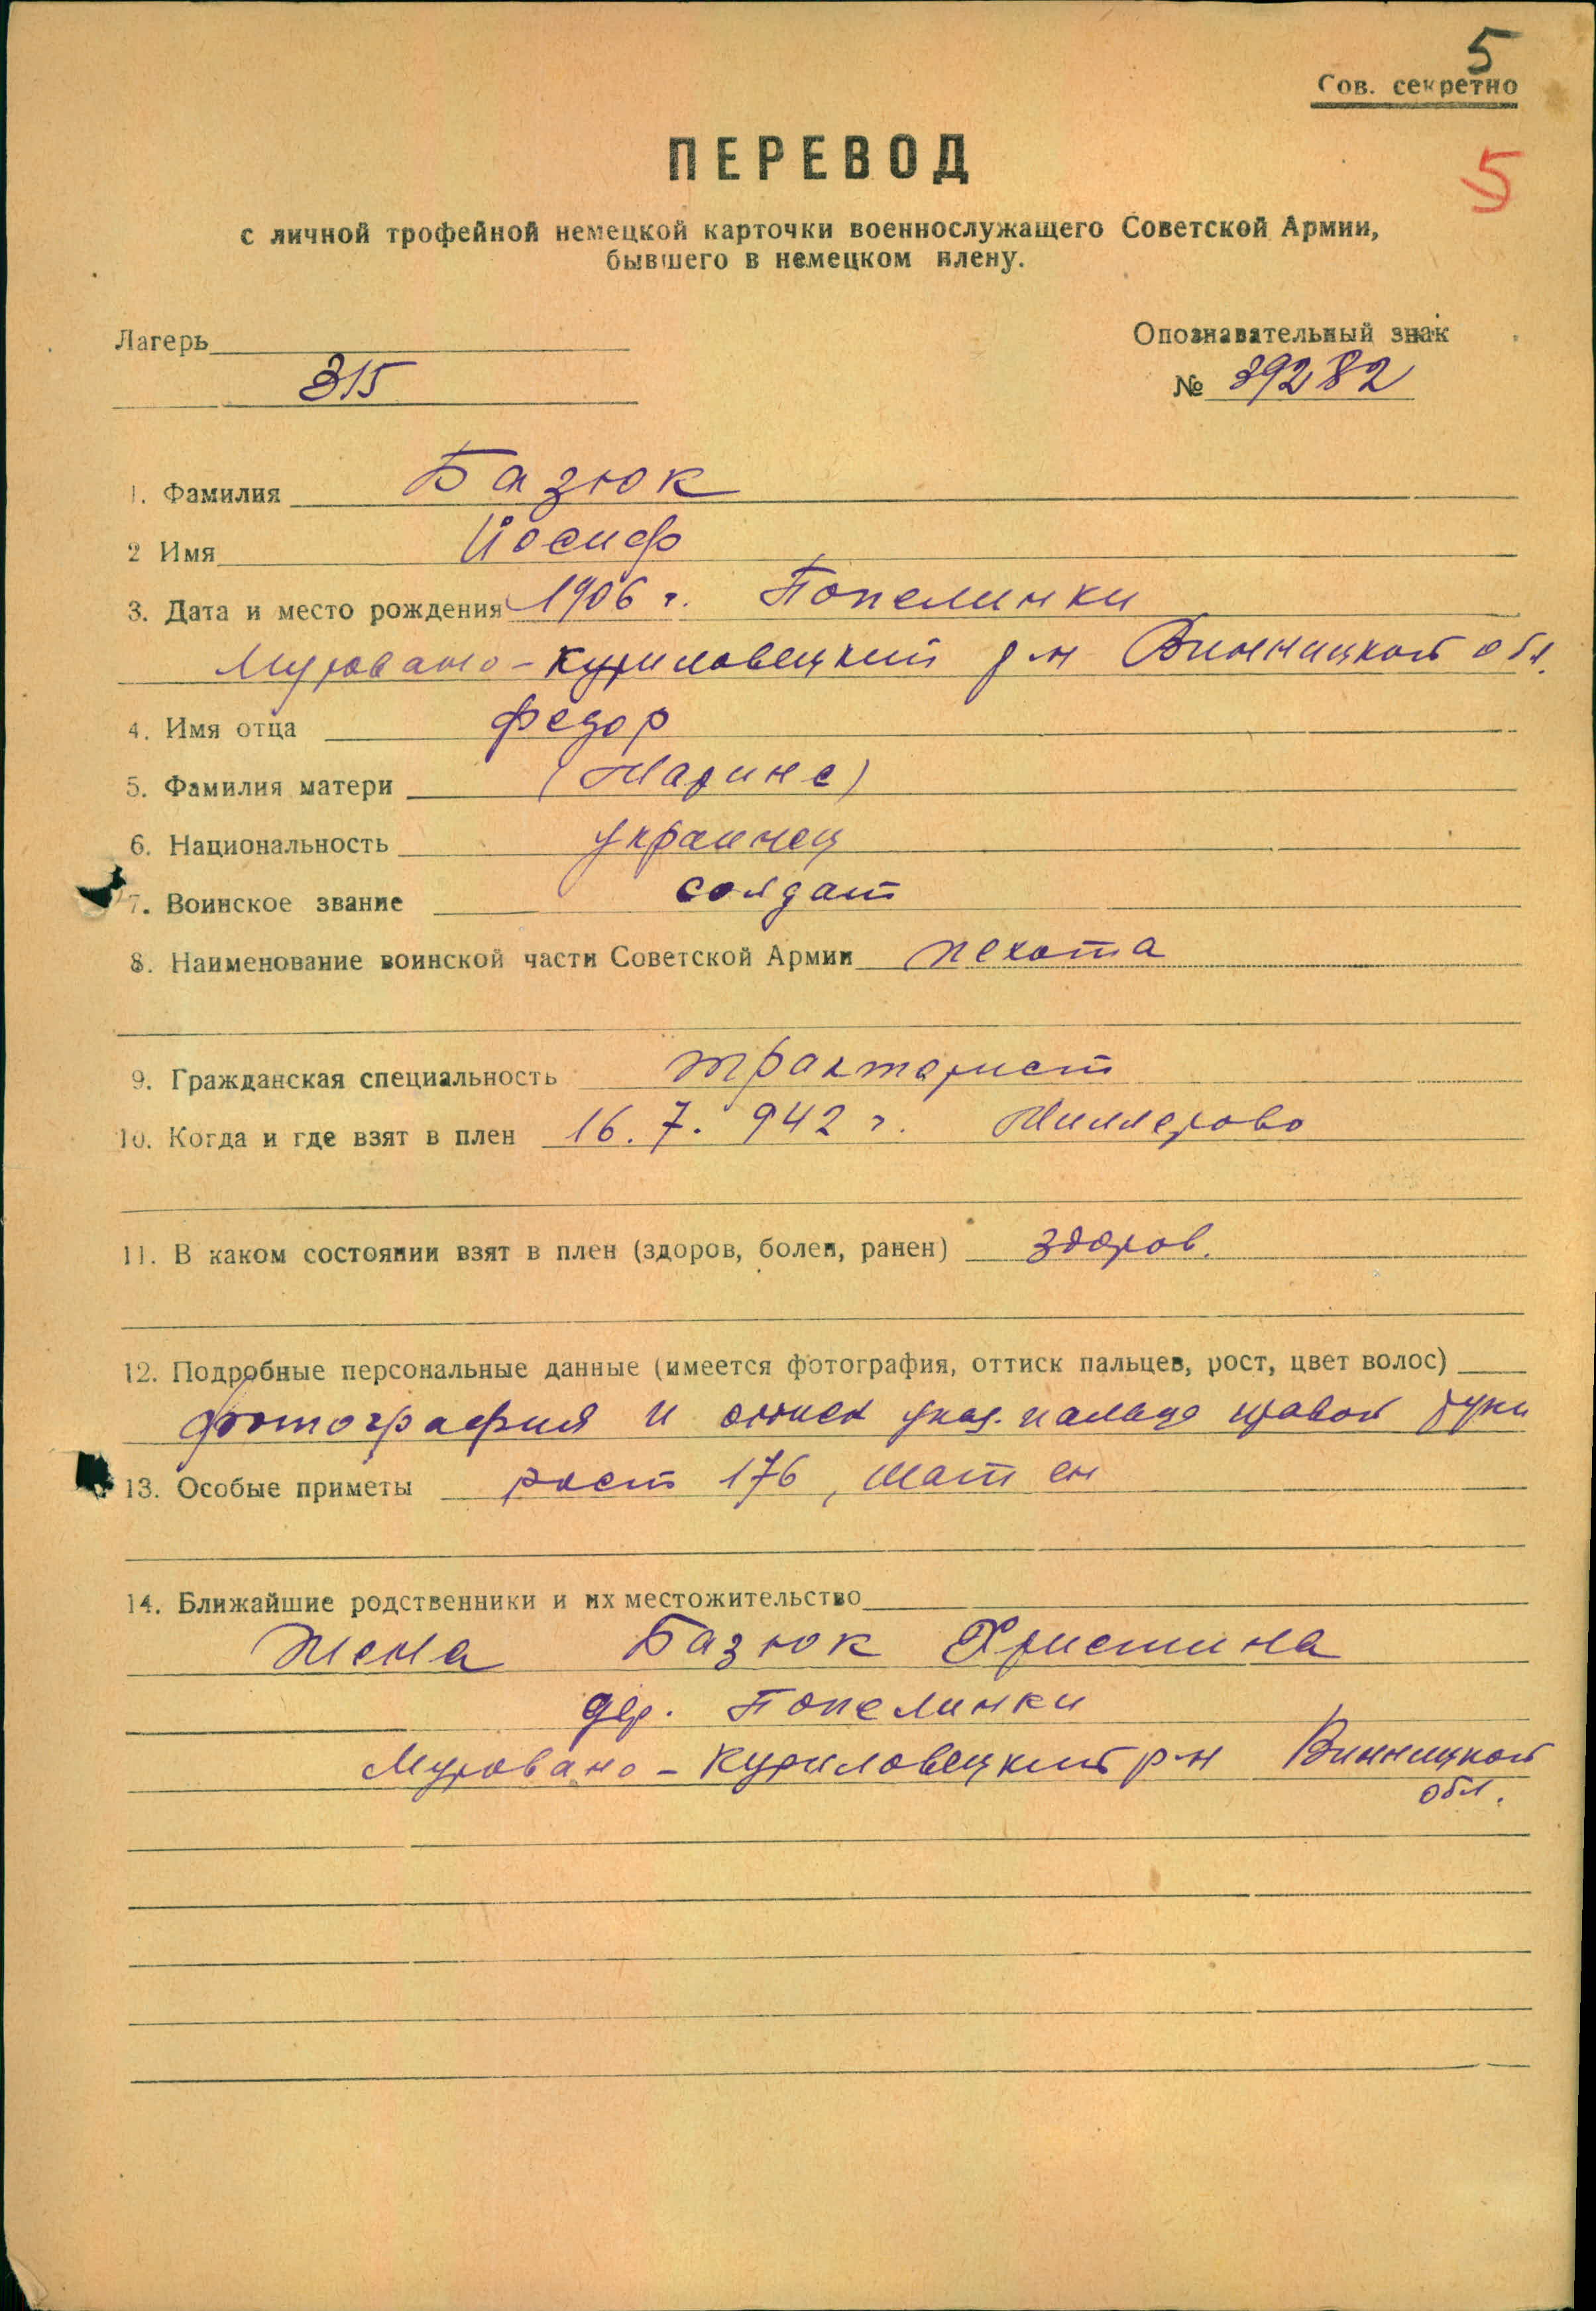 5
Сов. секретно
ПЕРЕВОД
5
с личной трофейной немецкой карточки военнослужащего Советской Армии,
бывшего в немецком плену.
Лагерь
Опознавательный знак
315
№ 39282
1. Фамилия Базюк
2 Имя Йосиф
3. Дата и место рождения 1906 г. Попелинки
Муровано-Куриловецкий р-н Винницкой обл.
4. Имя отца Федор
5. Фамилия матери (Марине)
6. Национальность украинец
7. Воинское звание солдат
8. Наименование воинской части Советской Армии пехота
9. Гражданская специальность тракторист
10. Когда и где взят в плен 16. 7. 942 г. Миллерово
11. В каком состоянии взят в плен (здоров, болен, ранен) здоров.
12. Подробные персональные данные (имеется фотография, оттиск пальцев, рост, цвет волос)
фотография и оттиск указ. пальца правой руки
13. Особые приметы рост 176, шатен
14. Ближайшие родственники и их местожительство
Жена Базюк Христина
дер. Попелинки
Муровано-Куриловецкий р-н Винницкой
обл.